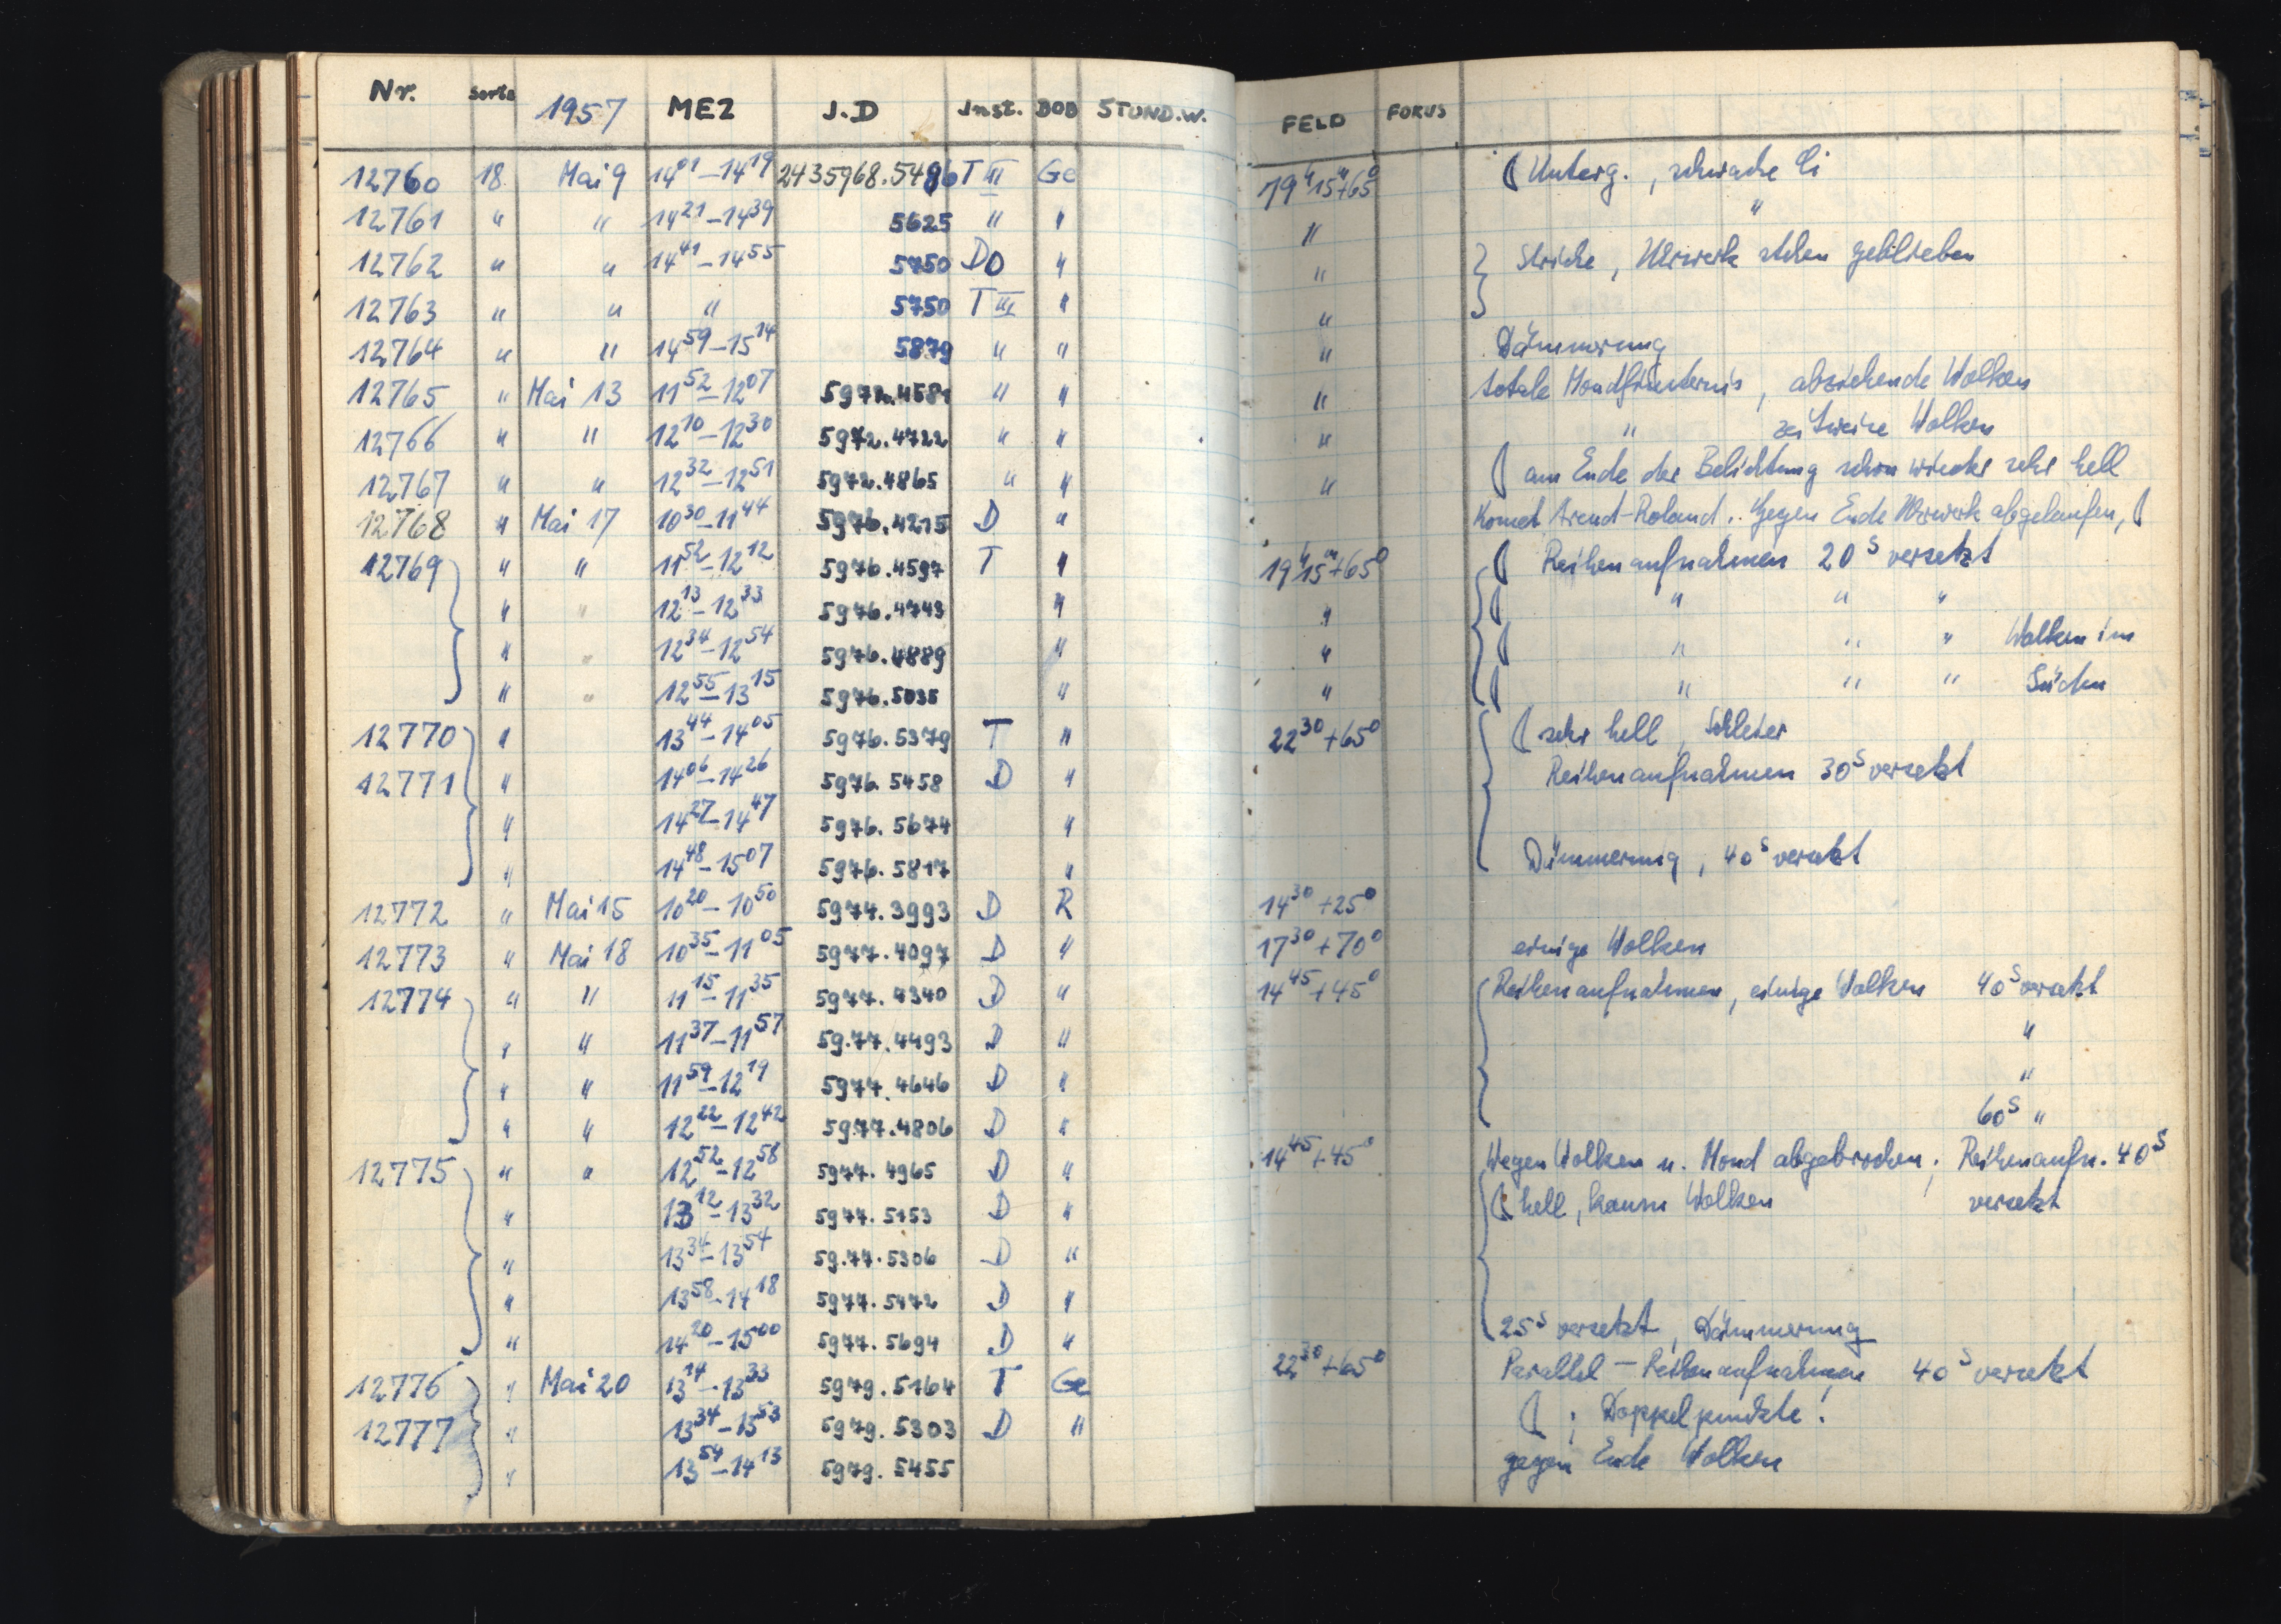 Nr. Sorte 1957 MEZ J.D Inst. BOB STUND.W. FELD FOKUS
12760 18 Mai 9 14⁰¹–14¹⁹ 2435968.5486 T III Ge 19ʰ15ᵐ+65⁰ ( Unterg. , schwache Ci
12761 " " 14²¹–14³⁹ 5625 " " " "
12762 " " 14⁴¹–14⁵⁵ 5750 DO " " } Striche, Uhrwerk stehen geblieben
12763 " " " 5750 T III " "
12764 " " 14⁵⁹–15¹⁴ 5879 " " " Dämmerung
12765 " Mai 13 11⁵²–12⁰⁷ 5972.4581 " " " totale Mondfinsternis, abziehende Wolken
12766 " " 12¹⁰–12³⁰ 5972.4722 " " " " zeitweise Wolken
12767 " " 12³²–12⁵¹ 5972.4865 " " " ( am Ende der Belichtung schon wieder sehr hell
12768 " Mai 17 10³⁰–11⁴⁴ 5976.4215 D " Komet Arend-Roland. Gegen Ende Uhrwerk abgelaufen, (
12769 " " 11⁵²–12¹² 5976.4597 T " 19ʰ15ᵐ+65⁰ ( Reihenaufnahmen 20ˢ versetzt
" " 12¹³–12³³ 5976.4743 " " ( " " "
" " 12³⁴–12⁵⁴ 5976.4889 " " ( " " " Wolken im
" " 12⁵⁵–13¹⁵ 5976.5035 " " ( " " " Süden
12770 " 13⁴⁴–14⁰⁵ 5976.5379 T " 22³⁰+65⁰ ( sehr hell, Schleier
12771 " 14⁰⁶–14²⁶ 5976.5458 D " Reihenaufnahmen 30ˢ versetzt
" 14²⁷–14⁴⁷ 5976.5674 "
" 14⁴⁸–15⁰⁷ 5976.5817 " Dämmerung, 40ˢ versetzt
12772 " Mai 15 10²⁰–10⁵⁰ 5974.3993 D R 14³⁰+25⁰
12773 " Mai 18 10³⁵–11⁰⁵ 5977.4097 D " 17³⁰+70⁰ einige Wolken
12774 " " 11¹⁵–11³⁵ 5977.4340 D " 14⁴⁵+45⁰ Reihenaufnahmen, einige Wolken 40ˢ versetzt
" " 11³⁷–11⁵⁷ 59.77.4493 D " "
" " 11⁵⁹–12¹⁹ 5977.4646 D " "
" " 12²²–12⁴² 5977.4806 D " 60ˢ "
12775 " " 12⁵²–12⁵⁸ 5977.4965 D " 14⁴⁵+45⁰ Wegen Wolken u. Mond abgebrochen; Reihenaufn. 40ˢ
" 13¹²–13³² 5977.5153 D " ( hell, kaum Wolken versetzt
" 13³⁴–13⁵⁴ 59.77.5306 D "
" 13⁵⁸–14¹⁸ 5977.5472 D "
" 14²⁰–15⁰⁰ 5977.5694 D " 25ˢ versetzt, Dämmerung
12776 " Mai 20 13¹⁴–13³³ 5979.5164 T Ge 22³⁰+65⁰ Parallel – Reihenaufnahmen 40ˢ versetzt
12777 " 13³⁴–13⁵³ 5979.5303 D " ( ; Doppelpunkte!
" 13⁵⁴–14¹³ 5979.5455 gegen Ende Wolken